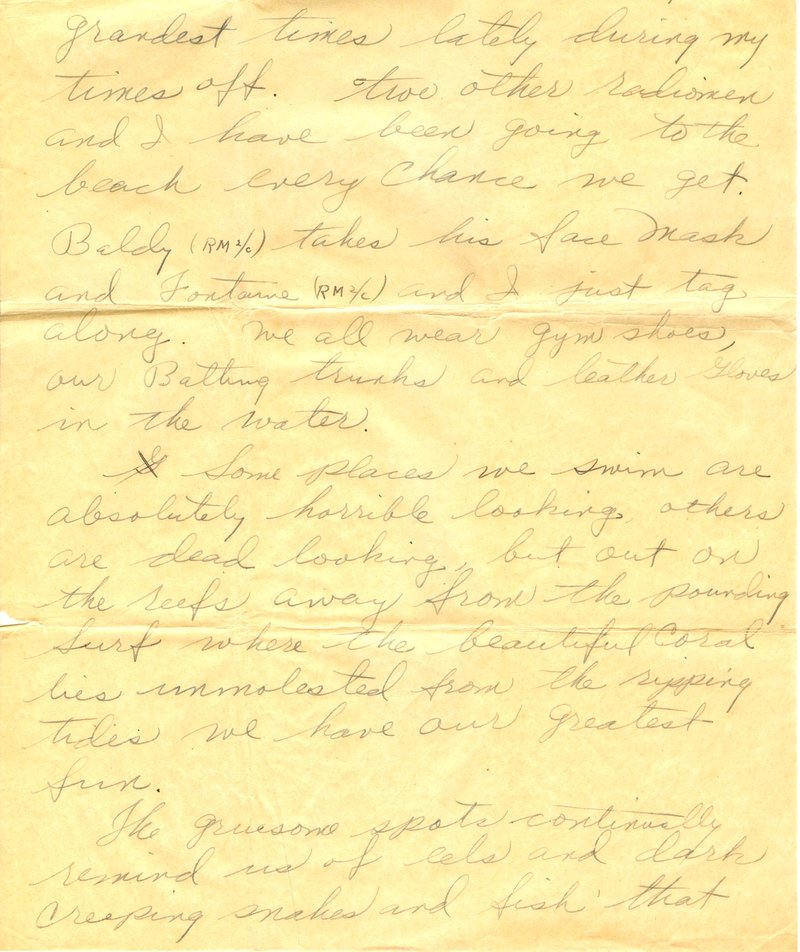 grandest times lately during my
times off. two other radiomen
and I have been going to the
beach every chance we get.
Baldy (RM 2/c) takes his face mask
and Fontaine (RM 2/c) and I just tag
along. We all wear gym shoes,
our Bathing trunks and leather gloves
in the water.
Some places we swim are
absolutely horrible looking, others
are dead looking, but out on
the reefs away from the pounding
surf where the beautiful Coral
lies unmolested from the ripping
tides we have our greatest
fun.
The gruesome spots continually
remind us of eels and dark
creeping snakes and fish that